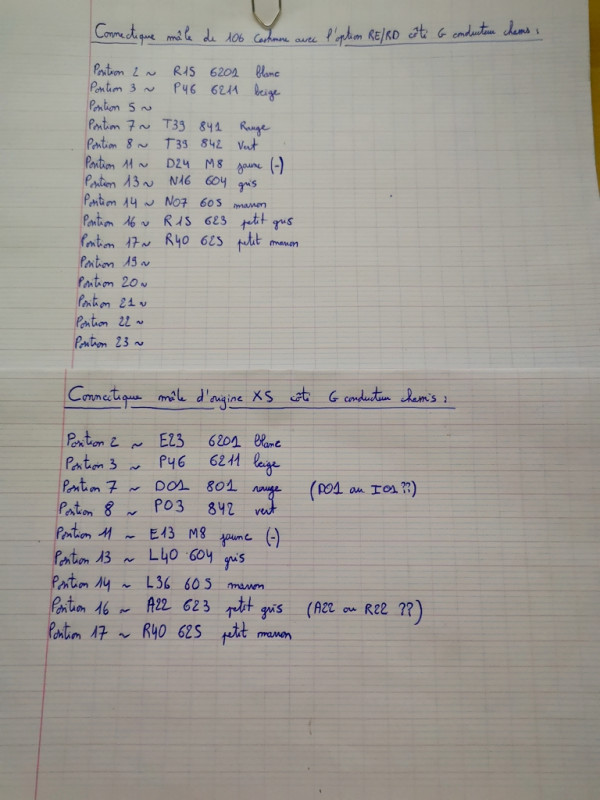 Connectique mâle de 106 Cashmere avec l'option RE/RD côté G conducteur chassis :
Position 2 ~ R15 6201 blanc
Position 3 ~ P46 6211 beige
Position 5 ~
Position 7 ~ T39 841 Rouge
Position 8 ~ T39 842 Vert
Position 11 ~ D24 M8 jaune (-)
Position 13 ~ N16 604 gris
Position 14 ~ N07 605 marron
Position 16 ~ R15 623 petit gris
Position 17 ~ R40 625 petit marron
Position 19 ~
Position 20 ~
Position 21 ~
Position 22 ~
Position 23 ~
Connectique mâle d'origine XS côté G conducteur chassis :
Position 2 ~ E23 6201 blanc
Position 3 ~ P46 6211 beige
Position 7 ~ D01 801 rouge (D01 ou I01 ??)
Position 8 ~ P03 842 vert
Position 11 ~ E13 M8 jaune (-)
Position 13 ~ L40 604 gris
Position 14 ~ L36 605 marron
Position 16 ~ A22 623 petit gris (A22 ou R22 ??)
Position 17 ~ R40 625 petit marron